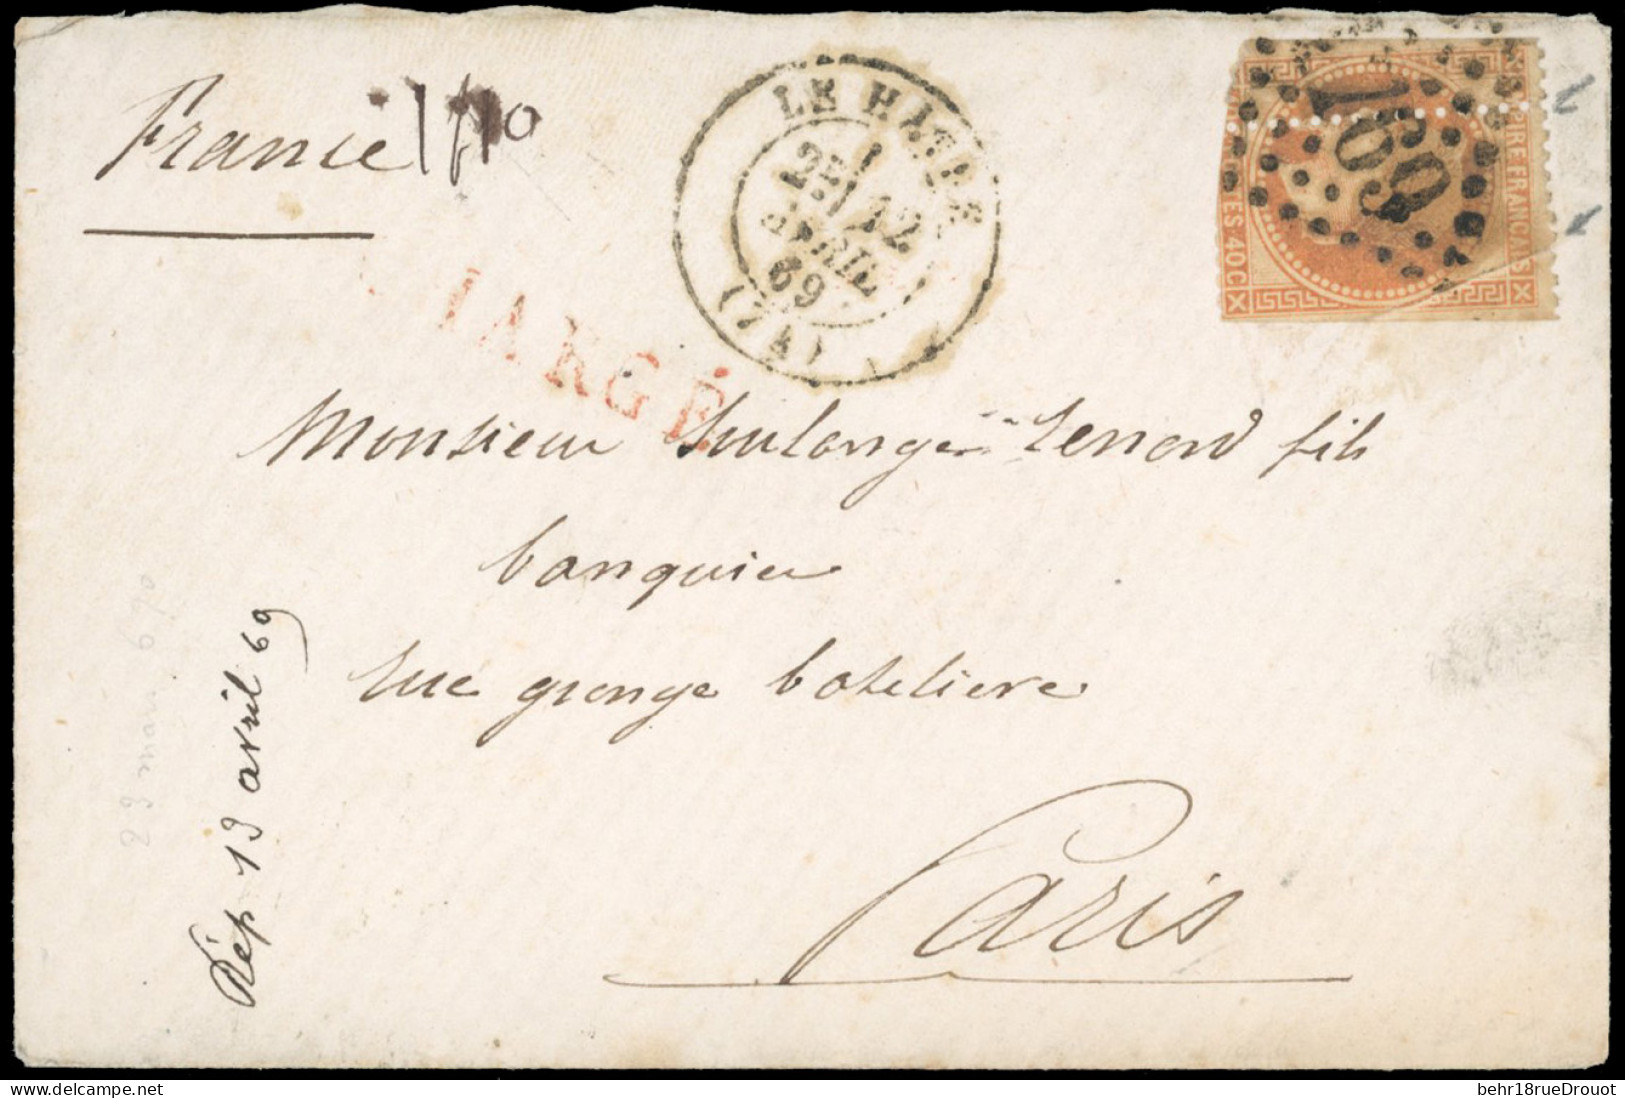 France
LE HAVRE
2E/
12
AVRIL
69
(74)
169
EMPIRE FRANÇAIS
POSTES 40C
CHARGÉ
Monsieur Soulange Tenord fils
banquier
rue grange bateliere
Paris
Rép 13 avril 69
23 mars 690
delcampe.net
behr18rueDrouot